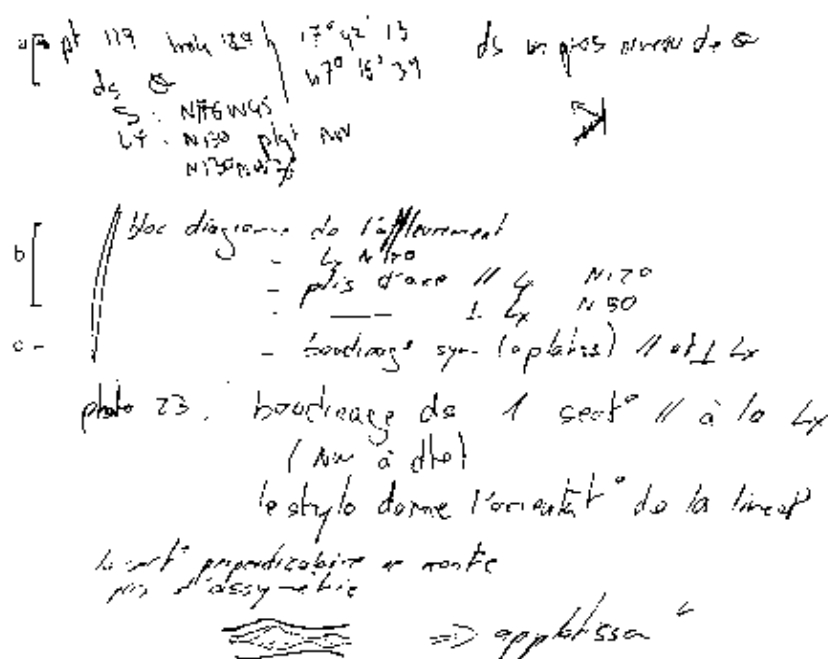 a pt 119 17° 42' 13 ds un gros niveau de
ds 47° 16' 39
S :
Lx : N130 plgt NW
b bloc diagramme de l'affleurement
- Lx N120
- plis d'axe // Lx N120
- —— ⊥ Lx N30
c - - boudinage sym (aplatiss) // et ⊥ Lx
photo 23 : boudinage de 1 sect° // à la Lx
(NW à dte)
le stylo donne l'orientat° de la lineat°
la sect° perpendiculaire ne montre
pas d'assymétrie
=> applatissa